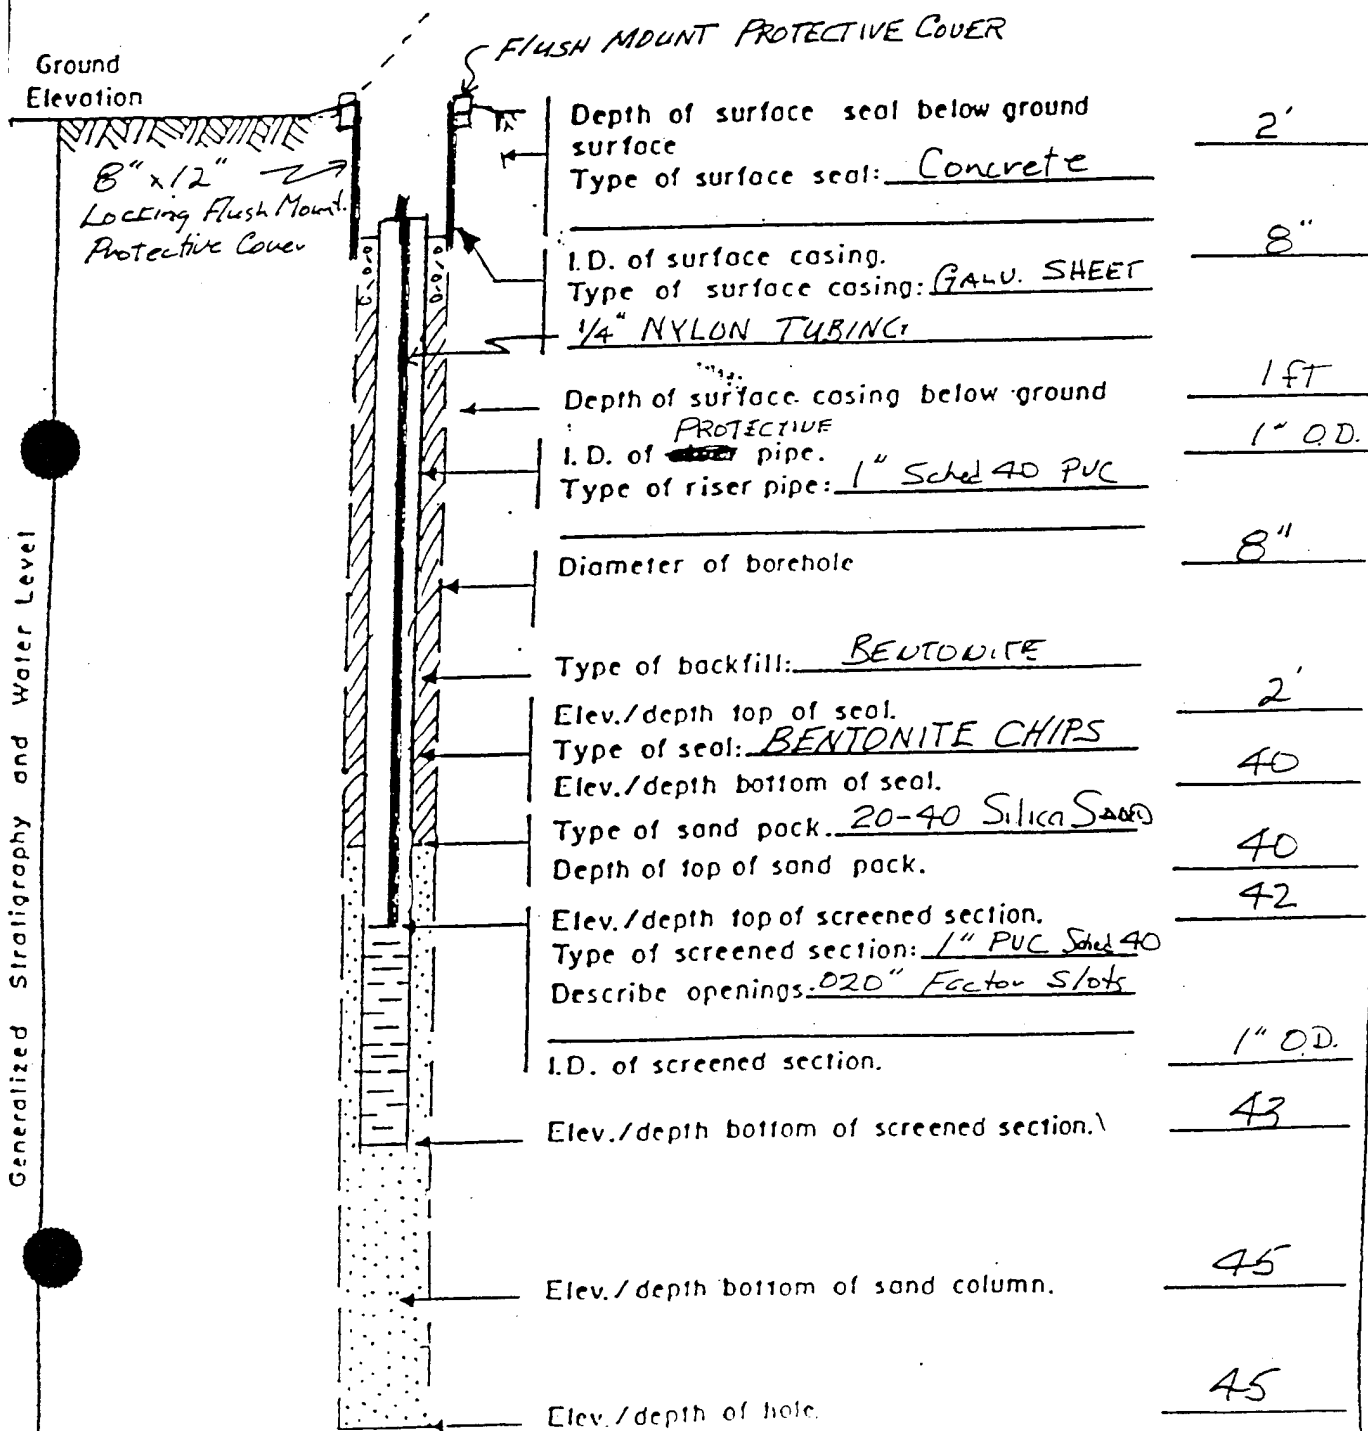 FLUSH MOUNT PROTECTIVE COVER
Ground
Elevation
8" x 12"
Locking Flush Mount
Protective Cover
Generalized Stratigraphy and Water Level
Depth of surface seal below ground
surface 2'
Type of surface seal: Concrete
I.D. of surface casing. 8"
Type of surface casing: GALV. SHEET
1/4" NYLON TUBING
Depth of surface casing below ground 1 fT
PROTECTIVE
I.D. of pipe. 1" O.D.
Type of riser pipe: 1" Sched 40 PVC
Diameter of borehole 8"
Type of backfill: BENTONITE
Elev./depth top of seal. 2'
Type of seal: BENTONITE CHIPS
Elev./depth bottom of seal. 40
Type of sand pack. 20-40 Silica SAND
Depth of top of sand pack. 40
Elev./depth top of screened section. 42
Type of screened section: 1" PVC Sched 40
Describe openings. .020" Factor Slots
I.D. of screened section. 1" O.D.
Elev./depth bottom of screened section.\ 43
Elev./depth bottom of sand column. 45
Elev./depth of hole. 45